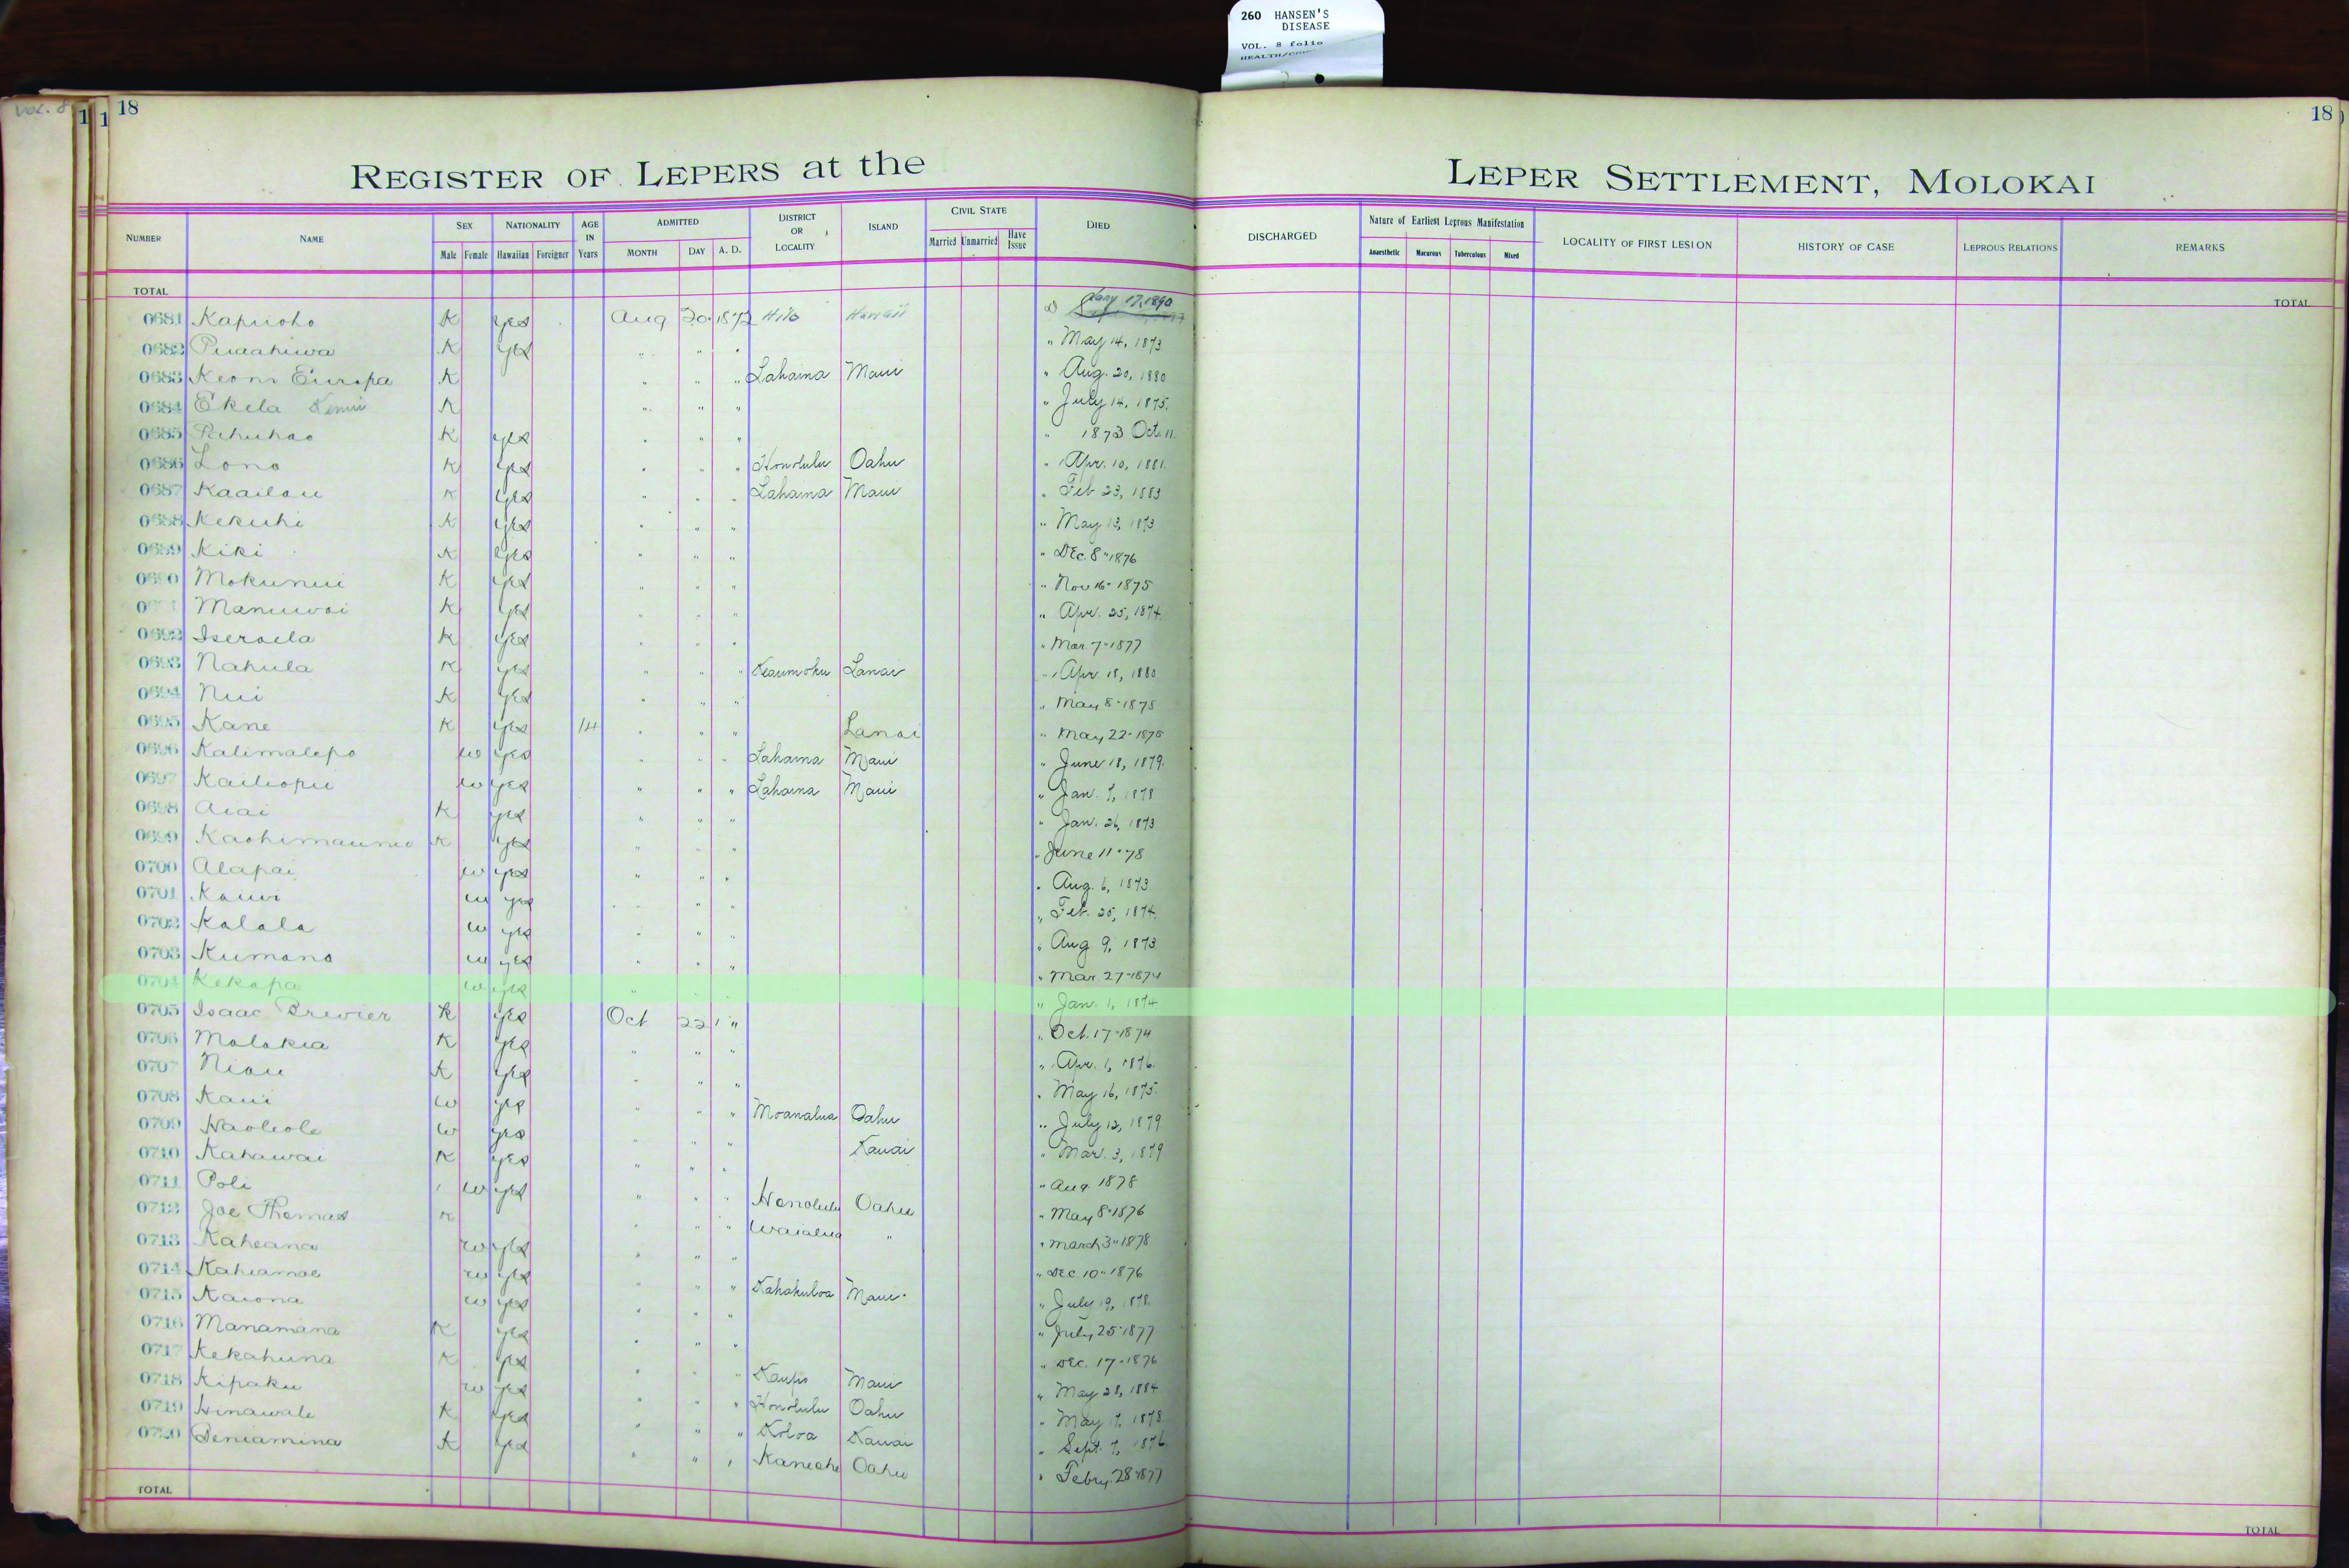 260 HANSEN'S
DISEASE
VOL. 8 folio
VOL. 8
1 1 18
18
REGISTER OF LEPERS at the LEPER SETTLEMENT, MOLOKAI
NUMBER NAME SEX Male Female NATIONALITY Hawaiian Foreigner AGE IN Years ADMITTED MONTH DAY A. D. DISTRICT OR LOCALITY ISLAND CIVIL STATE Married Unmarried Have Issue DIED DISCHARGED Nature of Earliest Leprous Manifestation Anaesthetic Macurous Tuberculous Mixed LOCALITY OF FIRST LESION HISTORY OF CASE LEPROUS RELATIONS REMARKS
TOTAL TOTAL
0681 Kapuoho K yes Aug 20 1872 Hilo Hawaii Jany 17, 1890
0682 Puaahiwa K yes " " " " May 14, 1873
0683 Keoni Europa K " " " Lahaina Maui " Aug. 20, 1880
0684 Ekela K " " " " July 14, 1875.
0685 Pahuhao K yes " " " " 1873 Oct. 11.
0686 Lono K yes " " " Honolulu Oahu " Apr. 10, 1881.
0687 Kaailau K yes " " " Lahaina Maui " Feb 23, 1883
0688 Kekuhi K yes " " " " May 13, 1873
0689 Kiki K yes " " " " Dec. 8" 1876
0690 Mokunui K yes " " " " Nov 16- 1875
Manuwai K yes " " " " Apr. 25, 1874.
0692 Iseraela K yes " " " " Mar 7- 1877
0693 Nahula K yes " " " Keaumoku Lanai " Apr. 18, 1880
0694 Nui K yes " " " " May 8" 1878
0695 Kane K yes 14 " " " Lanai " May 22- 1878
0696 Kalimalepo w yes " " " Lahaina Maui " June 18, 1879.
0697 Kailiopu w yes " " " Lahaina Maui " Jan. 7, 1878
0698 Aiai K yes " " " " Jan. 26, 1873
0699 Kaohimaunu K yes " " " " June 11" 78
0700 Alapai w yes " " " " Aug. 6, 1873
0701 Kauwi w yes " " " " Feb. 25, 1874.
0702 Kalala w yes " " " " Aug 9, 1873.
0703 Kumano w yes " " " " Mar. 27- 1874
0704 Kekapa w yes " " " " Jan. 1, 1874
0705 Isaac Brewier K yes Oct 22 " " Oct. 17- 1874
0706 Malokia K yes " " " " Apr. 1, 1876.
0707 Niau K yes " " " " May 16, 1875.
0708 Kaui w yes " " " Moanalua Oahu " July 12, 1879
0709 Haoleole w yes " " " Kauai " Mar. 3, 1879
0710 Kahawai K yes " " " " Aug 1878
0711 Poli w yes " " " Honolulu Oahu " May 8" 1876
0712 Joe Thomas K " " " Waialua " " March 3" 1878
0713 Kaheana w yes " " " " Dec. 10" 1876
0714 Kahiamoe w yes " " " Kahakuloa Maui " July 19, 1878.
0715 Kaiona w yes " " " " July 25" 1877
0716 Manamana K yes " " " " Dec. 17- 1876
0717 Kekahuna K yes " " " Kaupo Maui " May 28, 1884
0718 Kipaku w yes " " " Honolulu Oahu " May 17, 1878.
0719 Hinawale K yes " " " Koloa Kauai " Sept. 7, 1876.
0720 Beniamina K yes " " " Kaneohe Oahu " Febry. 28" 1877
TOTAL TOTAL